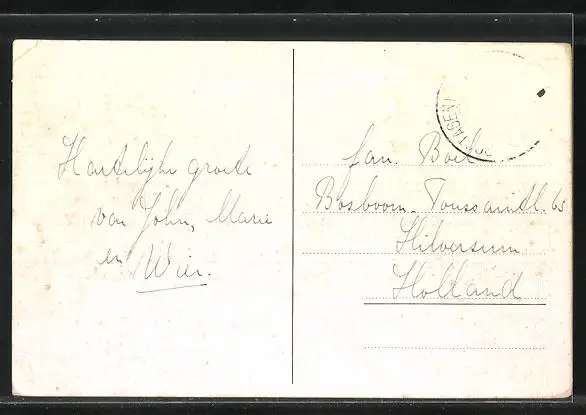 Hartelijke groete
van John, Marie
en Wier.
fam. Boel
Bosboom-Toussaintl. 65
Hilversum
Holland